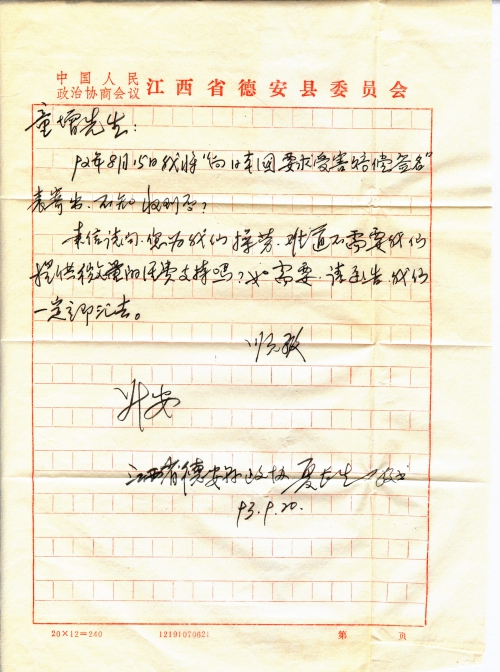 中国人民
政治协商会议 江西省德安县委员会
童增先生：
92年8月15日我将“向日本国要求受害赔偿签名”
表寄出，不知收到否？
来信请问，您为我们操劳，难道不需要我们
提供微量的经费支持吗？如需要，请函告，我们
一定立即汇去。
顺致
升安
江西省德安县政协 夏长生
93.9.20.
20×12=240 12191070621 第 页